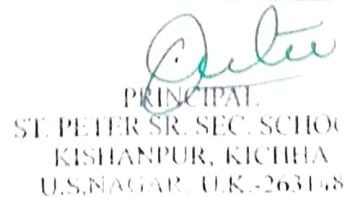 PRINCIPAL
ST. PETER SR. SEC. SCHOO
KISHANPUR, KICHHA
U.S.NAGAR, U.K.-263148